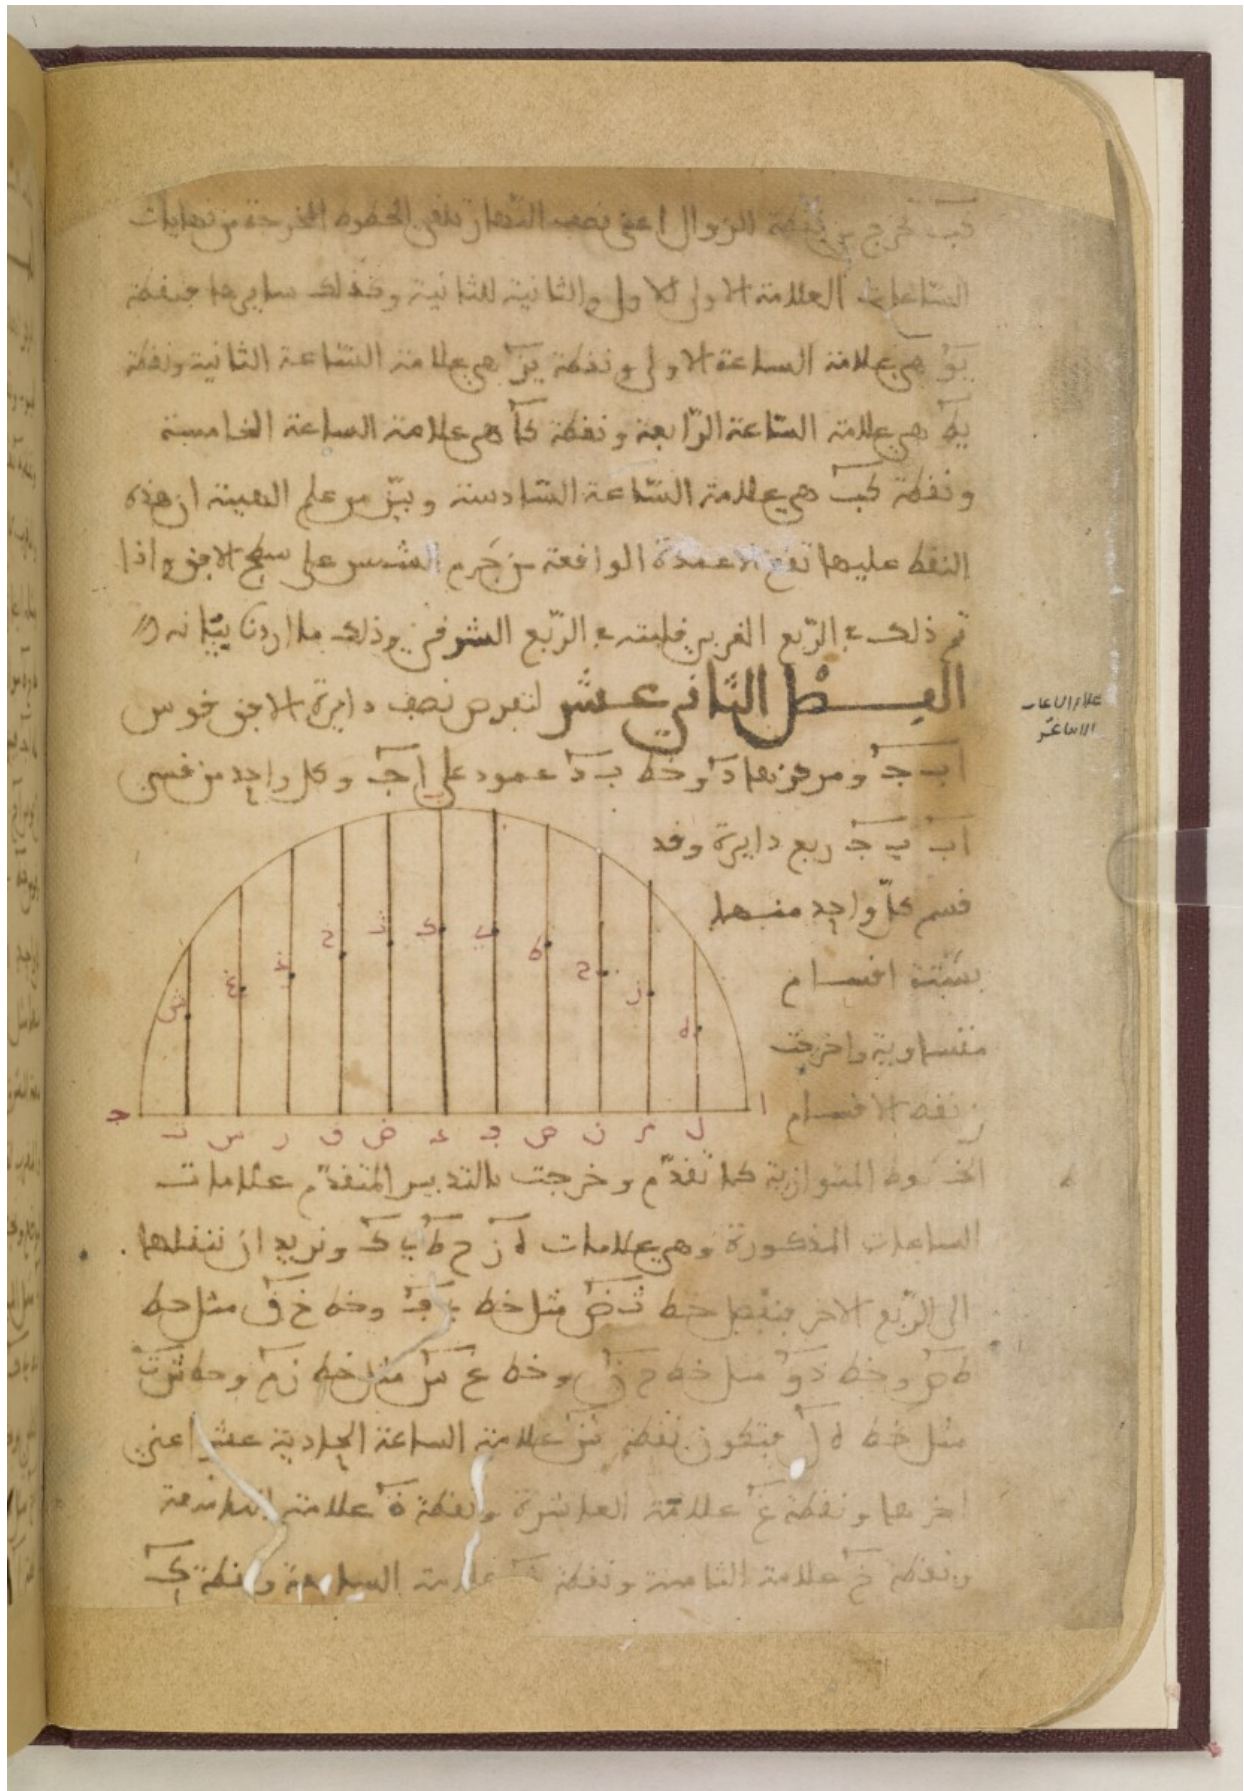 تخرج من نقطة الزوال اعنى نصف النهار تلقى الخطوط المخرجة من نهايات
الساعات العلامة الاولى للاولى والثانية للثانية وكذلك سايرها فنقطة
يو هي علامة الساعة الاولى ونقطة يز هي علامة الساعة الثانية ونقطة
يط هي علامة الساعة الرّابعة ونقطة كا هي علامة الساعة الخامسة
ونقطة كب هي علامة الساعة السّادسة وبيّن من علم الهيئة ان هذه
النقط عليها تقع الاعمدة الواقعة من جرم الشمس على سطح الافق واذا
تم ذلك في الرّبع الغربي قلبته في الرّبع الشرقي وذلك ما اردنا بيانه
الفصل الثاني عشر لنعرض نصف دايرة الافق قوس
علامة الساعات
ا ب ج ومركزها د وخط ب د عمود على ا ج وكل واحد من قسي
ا ب ب ج ربع دايرة وقد
قسم كلّ واحد منهما
بستّة اقسام
متساوية واخرجت
من نقط الاقسام
ش غ ذ خ ث ك ي ط ح ز ه
ج ا
ت س ر ق ض ع ف ص ن م ل
الخطوط المتوازية كما تقدّم وخرجت بالتدبير المتقدّم علامات
الساعات المذكورة وهي علامات ه ز ح ط ي ك ونريد ان ننقلها
الى الرّبع الاخر فنفصل خط ث ض مثل خط ي ف وخط خ ق مثل خط
ط ص وخط ذ ر مثل خط ح ن وخط غ س مثل خط ز م وخط ش ت
مثل خط ه ل فتكون نقطة ش علامة الساعة الحادية عشر اعني
اخرها ونقطة غ علامة العاشرة ونقطة ذ علامة التاسعة
ونقطة خ علامة الثامنة ونقطة علامة السابعة ونقطة ك